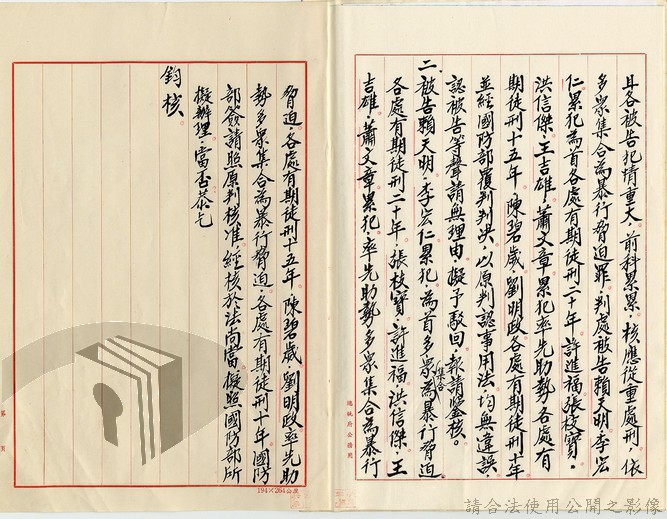 且各被告犯情重大，前科累累，核應從重處刑，依
多眾集合為暴行脅迫罪，判處被告賴天明、李宏
仁累犯為首各處有期徒刑二十年，許進福、張枝寶、
洪信傑、王吉雄、蕭文章累犯率先助勢各處有
期徒刑十五年，陳碧歲、劉明政各處有期徒刑十年
並經國防部覆判判決，以原判認事用法均無違誤，
認被告等聲請無理由，擬予駁回，報請鑒核。
二、被告賴天明、李宏仁累犯，為首多眾集合為暴行脅迫
各處有期徒刑二十年，張枝寶、許進福、洪信傑、王
吉雄、蕭文章累犯，率先助勢多眾集合為暴行
脅迫，各處有期徒刑十五年，陳碧歲、劉明政率先助
勢多眾集合為暴行脅迫，各處有期徒刑十年。國防
部簽請照原判核准，經核於法尚當，擬照國防部所
擬辦理，當否恭乞
鈞核。
總統府公務用
第 頁
194×264公厘
請合法使用公開之影像